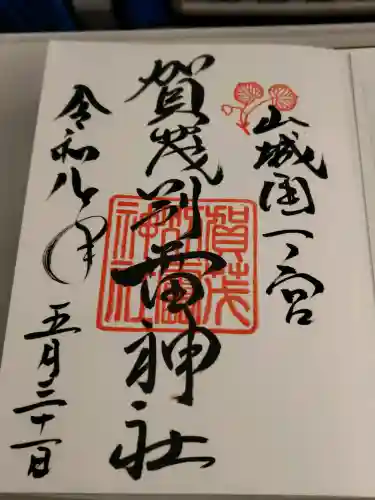 山城国一ノ宮
賀茂別雷神社
令和八年
五月三十一日
賀茂
別雷
神社